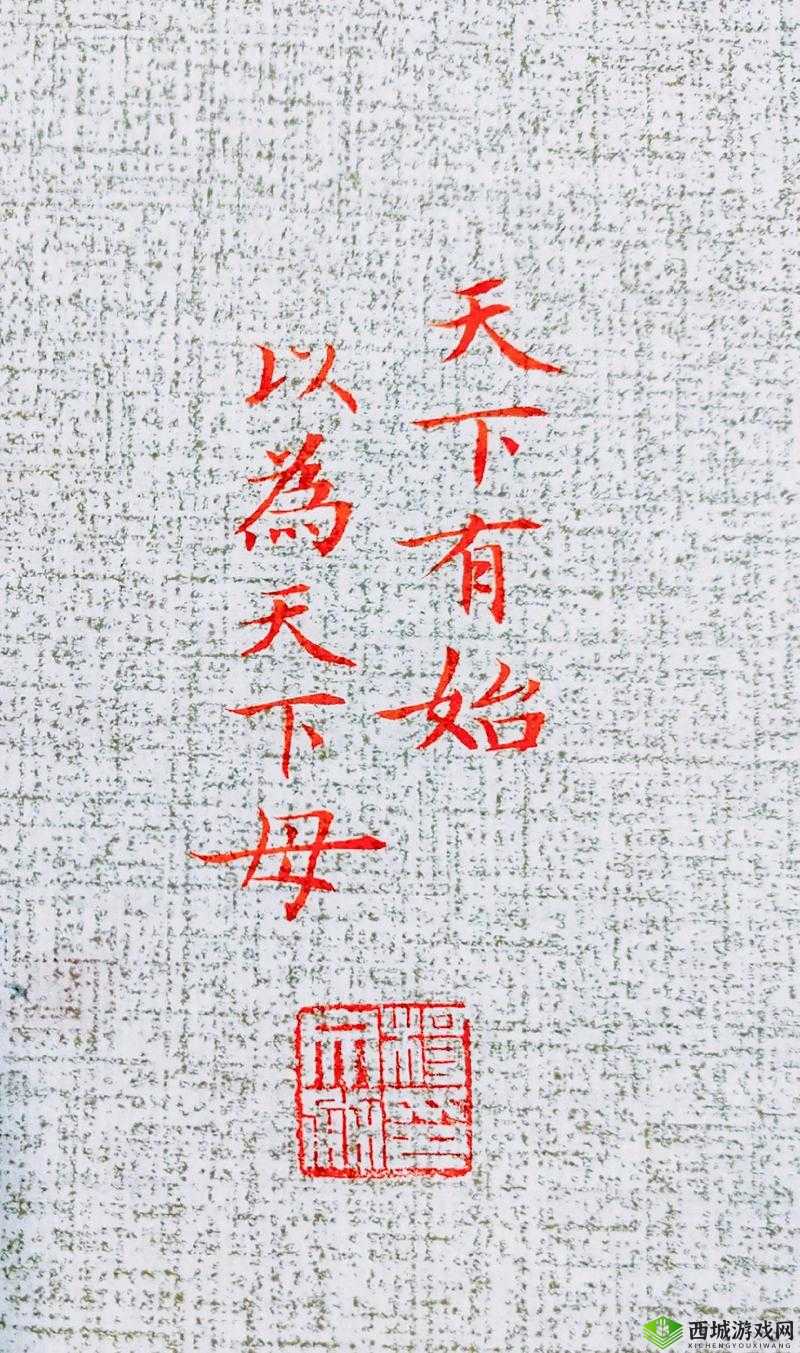 天下有始
以為天下母
西城游戏网
XICHENGYOUXIWANG